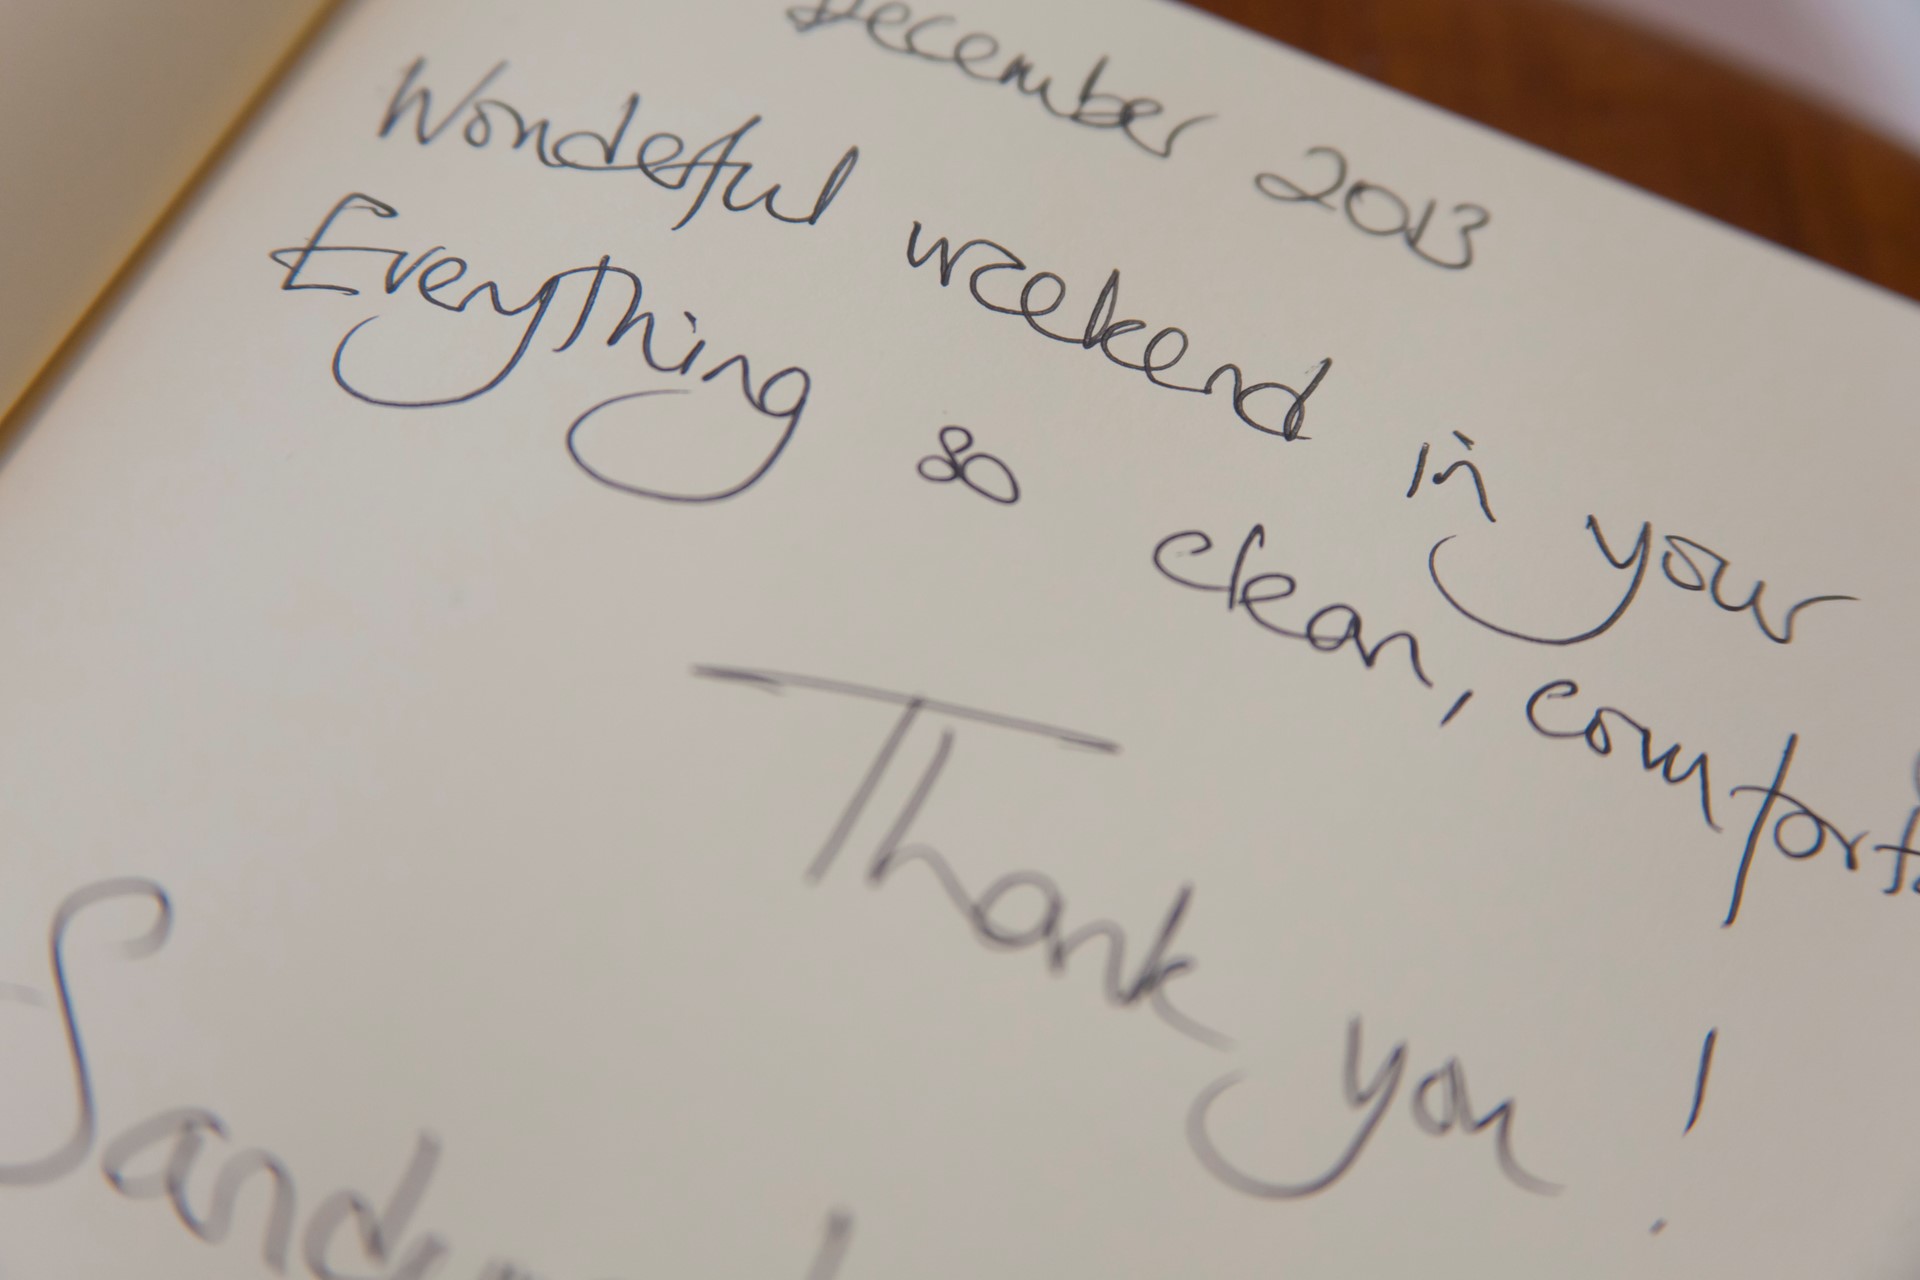 December 2013
Wondeful weekend in your
Everything so clean, comfort
Thank you!